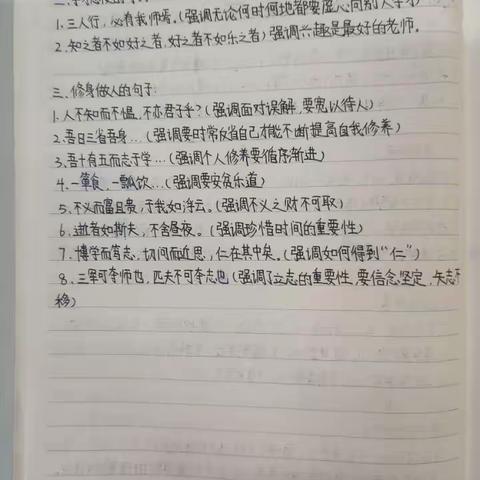 1.三人行,必有我师焉。(强调无论何时何地都要虚心向别人学习)
2.知之者不如好之者,好之者不如乐之者)强调兴趣是最好的老师。
三、修身做人的句子:
1.人不知而不愠,不亦君子乎?(强调面对误解,要宽以待人)
2.吾日三省吾身...(强调要时常反省自己才能不断提高自我修养)
3.吾十有五而志于学...(强调个人修养要循序渐进)
4.一箪食,一瓢饮...(强调要安贫乐道)
5.不义而富且贵,于我如浮云。(强调不义之财不可取)
6.逝者如斯夫,不舍昼夜。(强调珍惜时间的重要性)
7.博学而笃志,切问而近思,仁在其中矣。(强调如何得到“仁”)
8.三军可夺师也,匹夫不可夺志也(强调了立志的重要性,要信念坚定,矢志不
移)